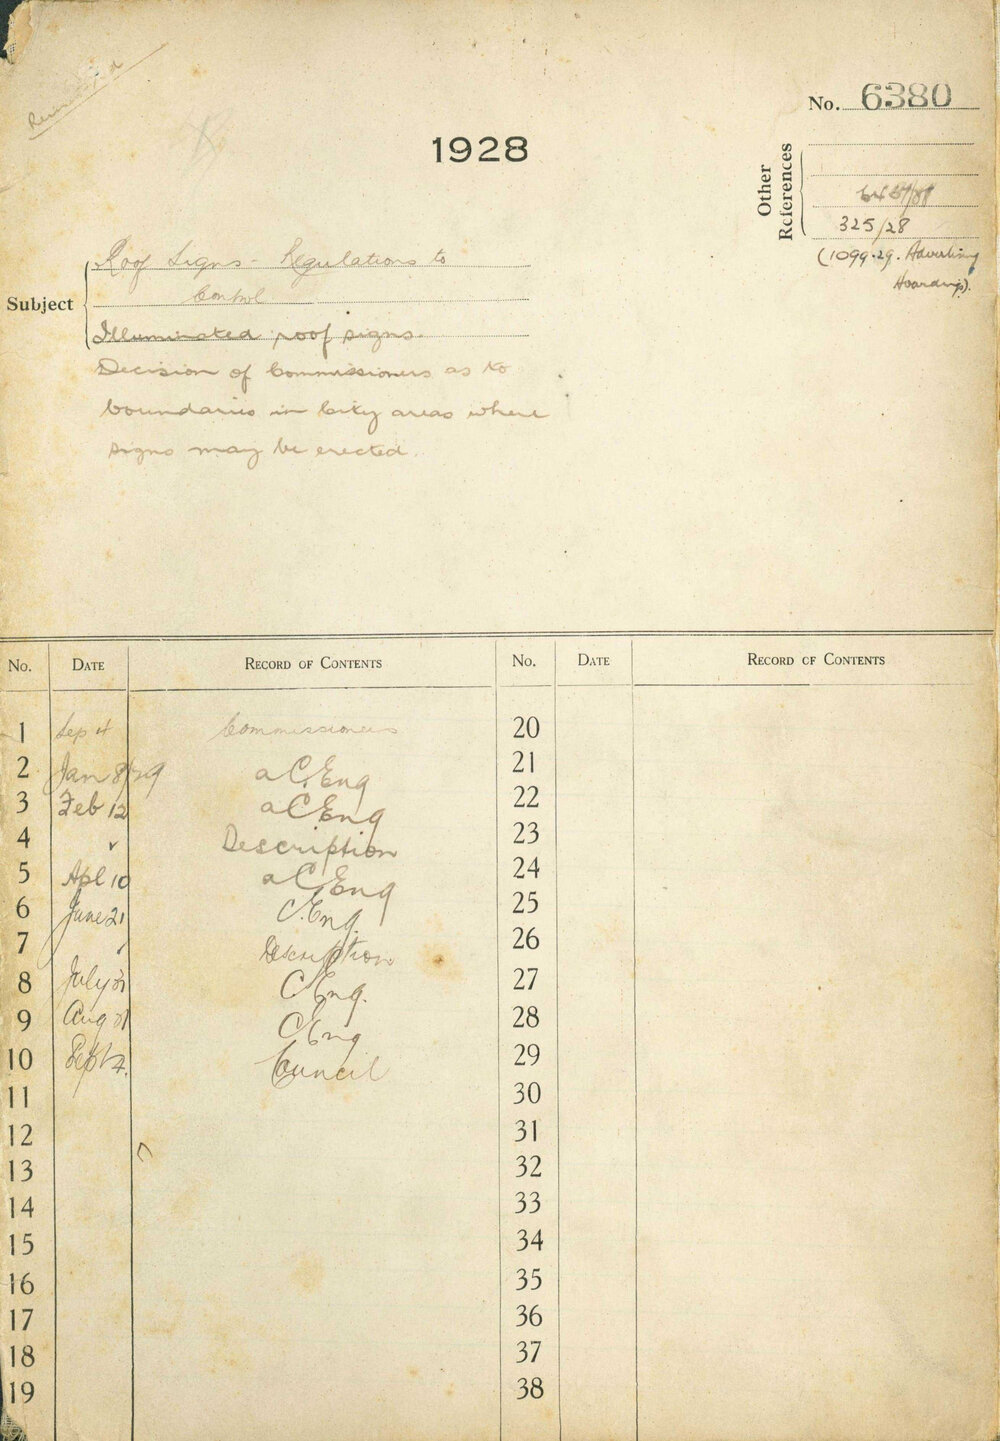 No. 6380
1928
Other References
325/28
(1099.29. Advertising
Hoardings).
Subject
Roof Signs - Regulations to
Control
Illuminated roof signs.
Decision of Commissioners as to
boundaries in City areas where
signs may be erected.
No. DATE RECORD OF CONTENTS No. DATE RECORD OF CONTENTS
1 Sep 4 Commissioners 20
2 Jan 8/29 a C.Eng 21
3 Feb 12 a C Eng 22
4 " Description 23
5 Apl 10 a C.Eng 24
6 June 21 C.Eng. 25
7 " Description 26
8 July C Eng. 27
9 Aug C Eng 28
10 Sept 4. Council 29
11 30
12 31
13 32
14 33
15 34
16 35
17 36
18 37
19 38